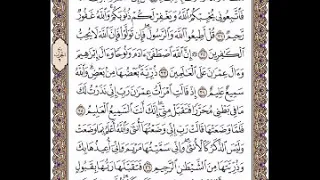 فَٱتَّبِعُونِى يُحْبِبْكُمُ ٱللَّهُ وَيَغْفِرْ لَكُمْ ذُنُوبَكُمْ وَٱللَّهُ غَفُورٌ
رَّحِيمٌ ٣١ قُلْ أَطِيعُوا۟ ٱللَّهَ وَٱلرَّسُولَ فَإِن تَوَلَّوْا۟ فَإِنَّ ٱللَّهَ لَا يُحِبُّ
ٱلْكَـٰفِرِينَ ٣٢ إِنَّ ٱللَّهَ ٱصْطَفَىٰٓ ءَادَمَ وَنُوحًا وَءَالَ إِبْرَٰهِيمَ
وَءَالَ عِمْرَٰنَ عَلَى ٱلْعَـٰلَمِينَ ٣٣ ذُرِّيَّةًۢ بَعْضُهَا مِنۢ بَعْضٍ وَٱللَّهُ
سَمِيعٌ عَلِيمٌ ٣٤ إِذْ قَالَتِ ٱمْرَأَتُ عِمْرَٰنَ رَبِّ إِنِّى نَذَرْتُ لَكَ
مَا فِى بَطْنِى مُحَرَّرًا فَتَقَبَّلْ مِنِّىٓ إِنَّكَ أَنتَ ٱلسَّمِيعُ ٱلْعَلِيمُ ٣٥
فَلَمَّا وَضَعَتْهَا قَالَتْ رَبِّ إِنِّى وَضَعْتُهَآ أُنثَىٰ وَٱللَّهُ أَعْلَمُ بِمَا وَضَعَتْ
وَلَيْسَ ٱلذَّكَرُ كَٱلْأُنثَىٰ وَإِنِّى سَمَّيْتُهَا مَرْيَمَ وَإِنِّىٓ أُعِيذُهَا بِكَ
وَذُرِّيَّتَهَا مِنَ ٱلشَّيْطَـٰنِ ٱلرَّجِيمِ ٣٦ فَتَقَبَّلَهَا رَبُّهَا بِقَبُولٍ